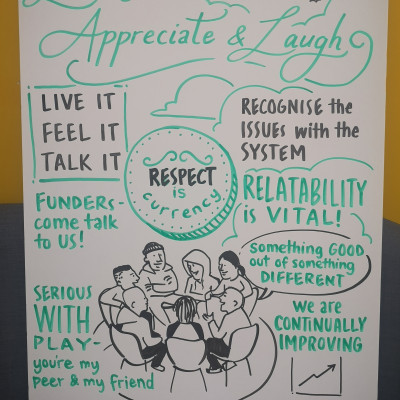 Appreciate & Laugh
LIVE IT
FEEL IT
TALK IT
RECOGNISE the
ISSUES with the
SYSTEM
RESPECT
is
currency
FUNDERS-
come talk
to us!
RELATABILITY
is VITAL!
something GOOD
out of something
DIFFERENT
SERIOUS
WITH
PLAY-
you're my
peer & my friend
We are
CONTINUALLY
IMPROVING